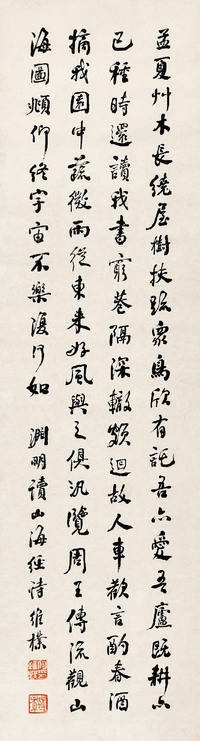 孟夏艸木長繞屋樹扶疏衆鳥欣有託吾亦愛吾廬既耕亦
已種時還讀我書窮巷隔深轍頗迴故人車歡言酌春酒
摘我園中蔬微雨從東來好風與之俱汎覽周王傳流觀山
海圖頫仰終宇宙不樂復何如 淵明讀山海經詩 維樸